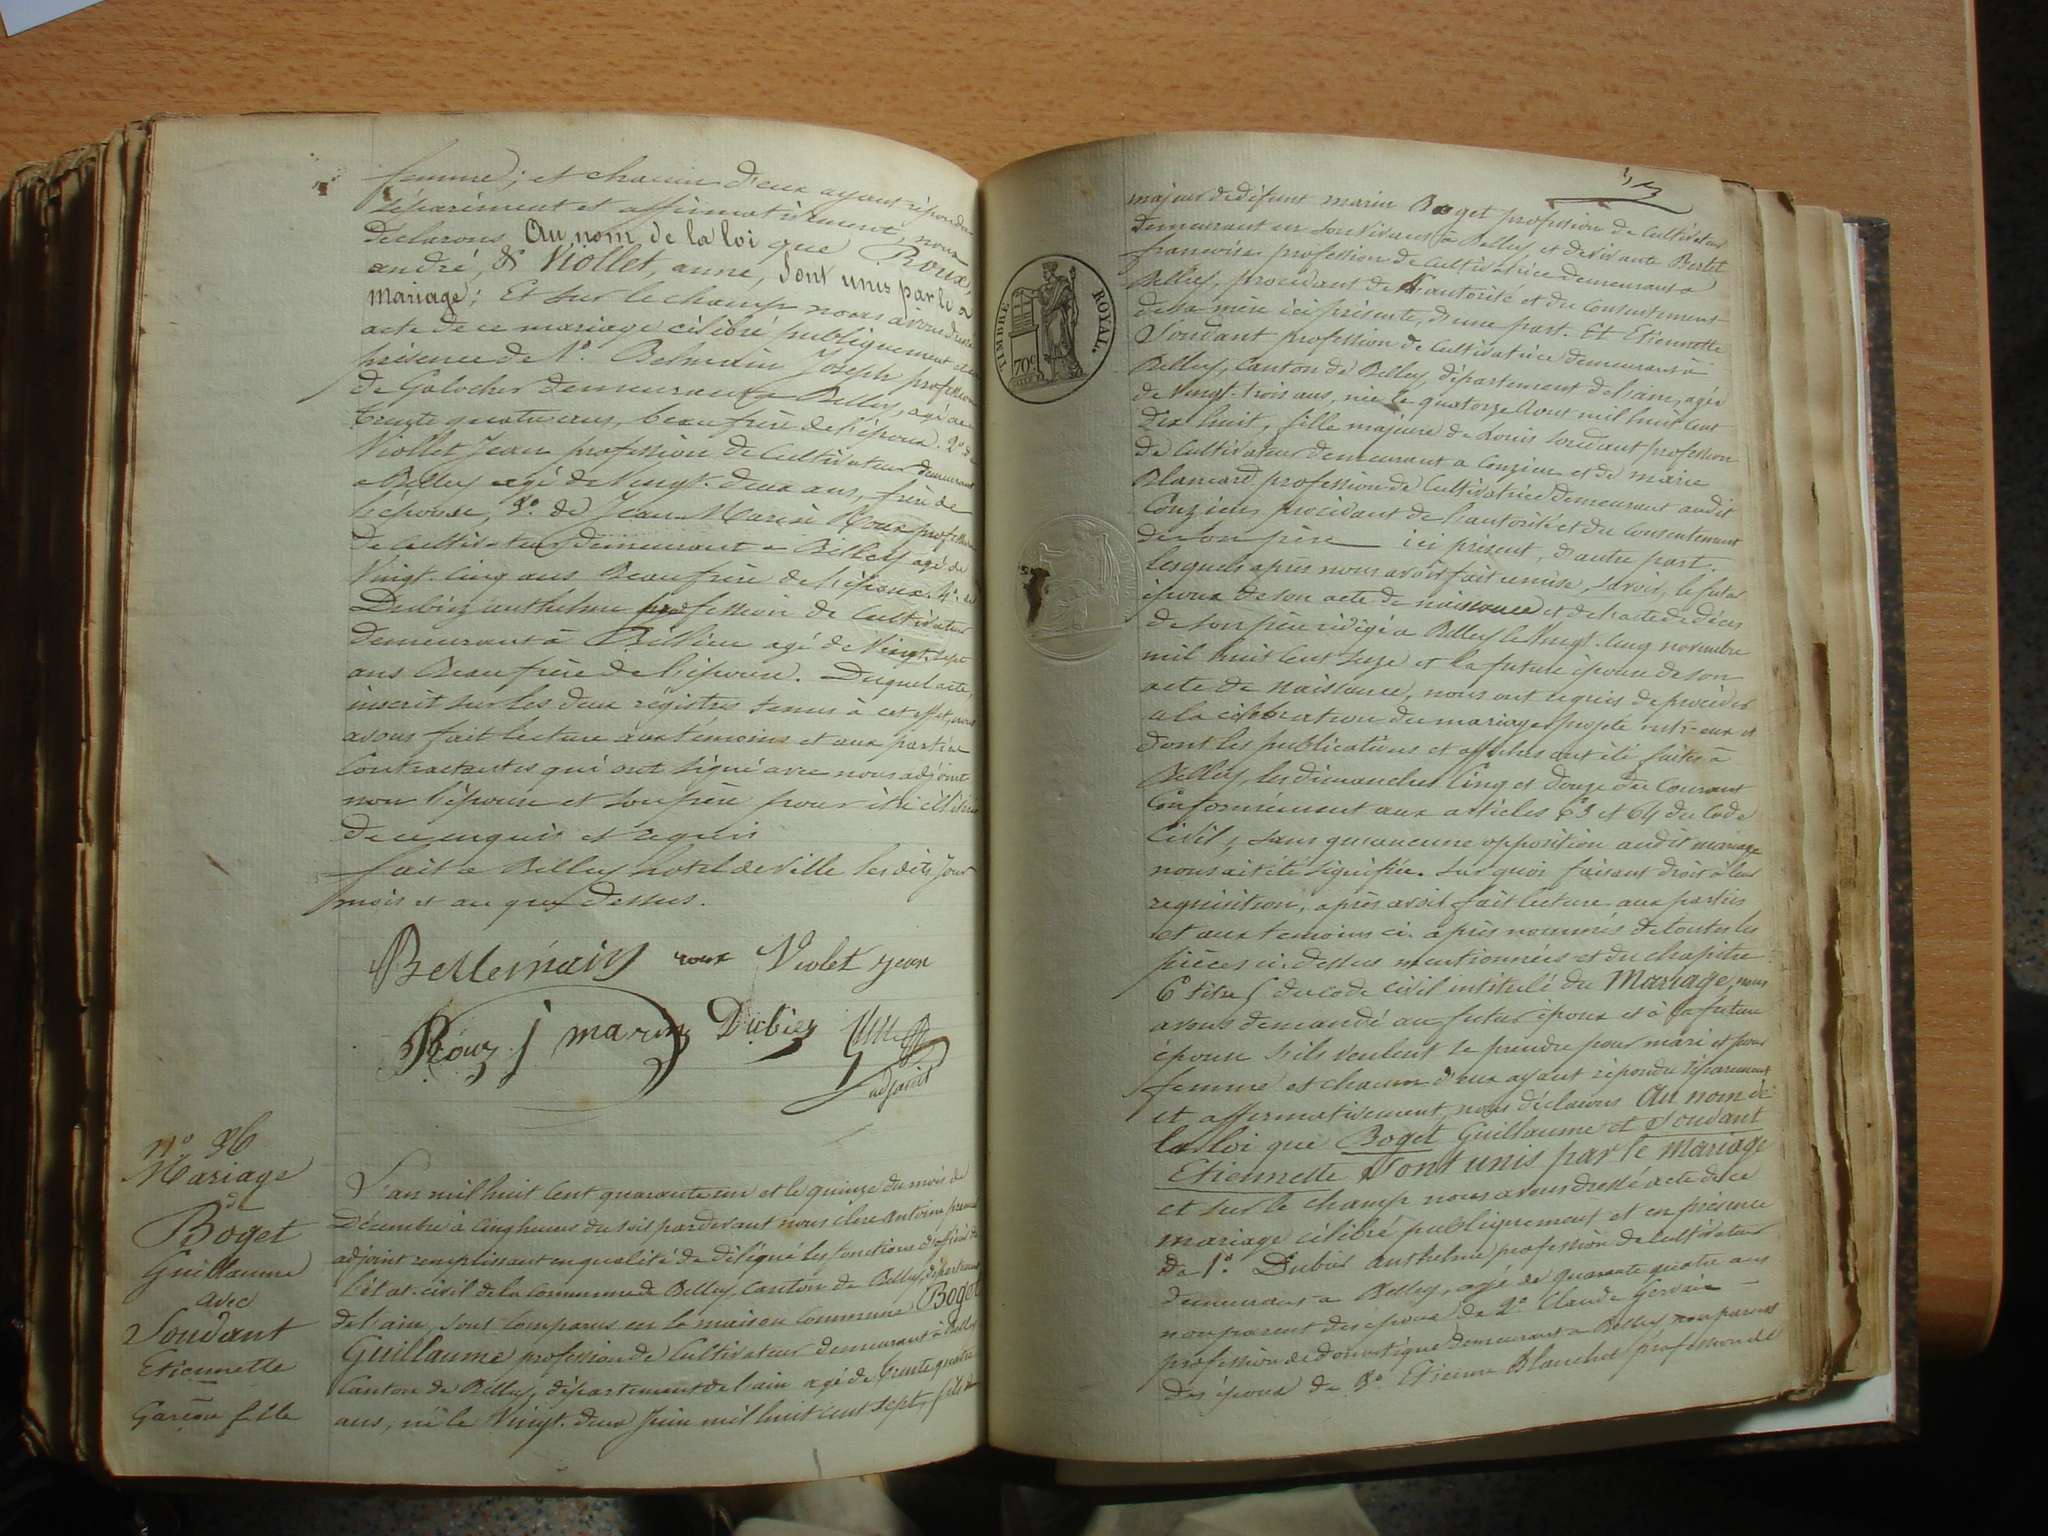 femme; et chacun d'eux ayant répondu
séparément et affirmativement, nous
déclarons Au nom de la loi que Roux,
andré, & Viollet, anne, sont unis par le
mariage; Et sur le champ nous avons dressé
acte de ce mariage célébré publiquement en
présence de 1o. Joseph profession
de Galocher demeurant a Belley, agé de
trente quatre ans, beau frère de l'époux. 2o. de
Viollet Jean profession de Cultivateur demeurant
a Belley agé de Vingt-deux ans, frère de
l'épouse, 3o. de Jean Marie Roux profession
de Cultivateur demeurant a Belley agé de
Vingt-cinq ans Beaufrère de l'époux. 4o. de
Dubiez anthelme profession de Cultivateur
demeurant à Billieu agé de Vingt-sept
ans Beaufrère de l'épouse. Duquel acte,
inscrit sur les deux régistres tenus à cet effet, nous
avons fait lecture aux témoins et aux parties
Contractantes qui ont signé avec nous adjoint
non l'épouse et son père pour être illitérés
de ce enquis et requis
fait a Belley hotel de Ville les dits jour
mois et an que dessus.
Bellemain roux Violet jean
Roux j marie Dubiez
adjoint
No. 36
Mariage
d
Boget
Guillaume
avec
Soudant
Etiennette
Garçon fille
L'an mil huit cent quarante un et le quinze du mois de
Décembre à cinq heures du soir pardevant nous Antoine premier
adjoint remplissant en qualité de délégué les fonctions d'officier de
l'état-civil de la Commune de Belley Canton de Belley, département
de l'ain, sont comparus en la maison commune Boget
Guillaume profession de Cultivateur demeurant à Belley
Canton de Belley, département de l'ain agé de trente quatre
ans, né le Vingt-deux Juin mil huit cent sept, fils
majeur de défunt marin Boget profession de Cultivateur
demeurant en son vivant à Belley et de vivante Bertet
françoise profession de Cultivatrice demeurant a
Belley, procédant de l'autorité et du Consentement
de sa mère ici présente, d'une part. Et Etiennette
Soudant profession de Cultivatrice demeurant à
Belley, Canton de Belley, département de l'ain, agée
de Vingt-trois ans, née le quatorze Aout mil huit cent
dix huit, fille majeure de Louis Soudant profession
de Cultivateur demeurant a Conzieu et de marie
Blancard profession de Cultivatrice demeurant audit
Conzieu, procédant de l'autorité et du Consentement
de son père ici présent, d'autre part.
lesquels après nous avoir fait remise, savoir, le futur
époux de son acte de naissance et de l'acte de décès
de son père rédigé a Belley le Vingt-cinq novembre
mil huit cent seize et la future épouse de son
acte de Naissance, nous ont requis de procéder
a la célébration du mariage projeté entr-eux et
dont les publications et affiches ont été faites à
Belley, les dimanches Cinq et douze du Courant
Conformément aux articles 63 et 64 du Code
Civil, sans qu'aucune opposition audit mariage
nous ait été signifiée. Sur quoi faisant droit à leur
réquisition, après avoir fait lecture aux parties
et aux temoins ci-après nommés de toutes les
pièces ci-dessus mentionnées et du chapitre
6 titre 5 du code civil intitulé du Mariage, nous
avons demandé au futur époux et à la future
épouse s'ils veulent se prendre pour mari et pour
femme et chacun d'eux ayant répondu séparement
et affirmativement, nous déclarons Au nom de
la loi que Boget Guillaume et Soudant
Etiennette Sont unis par le Mariage
et sur le champ nous avons dressé acte de ce
mariage célébré publiquement et en présence
de 1o. Dubiez anthelme profession de Cultivateur
demeurant a Belley, agé de quarante quatre ans
non parent des époux de 2o. Claude Gervais
profession de domestique demeurant a Belley non parent
des époux de 3o. Etienne Blanchet profession de
TIMBRE ROYAL
70c.